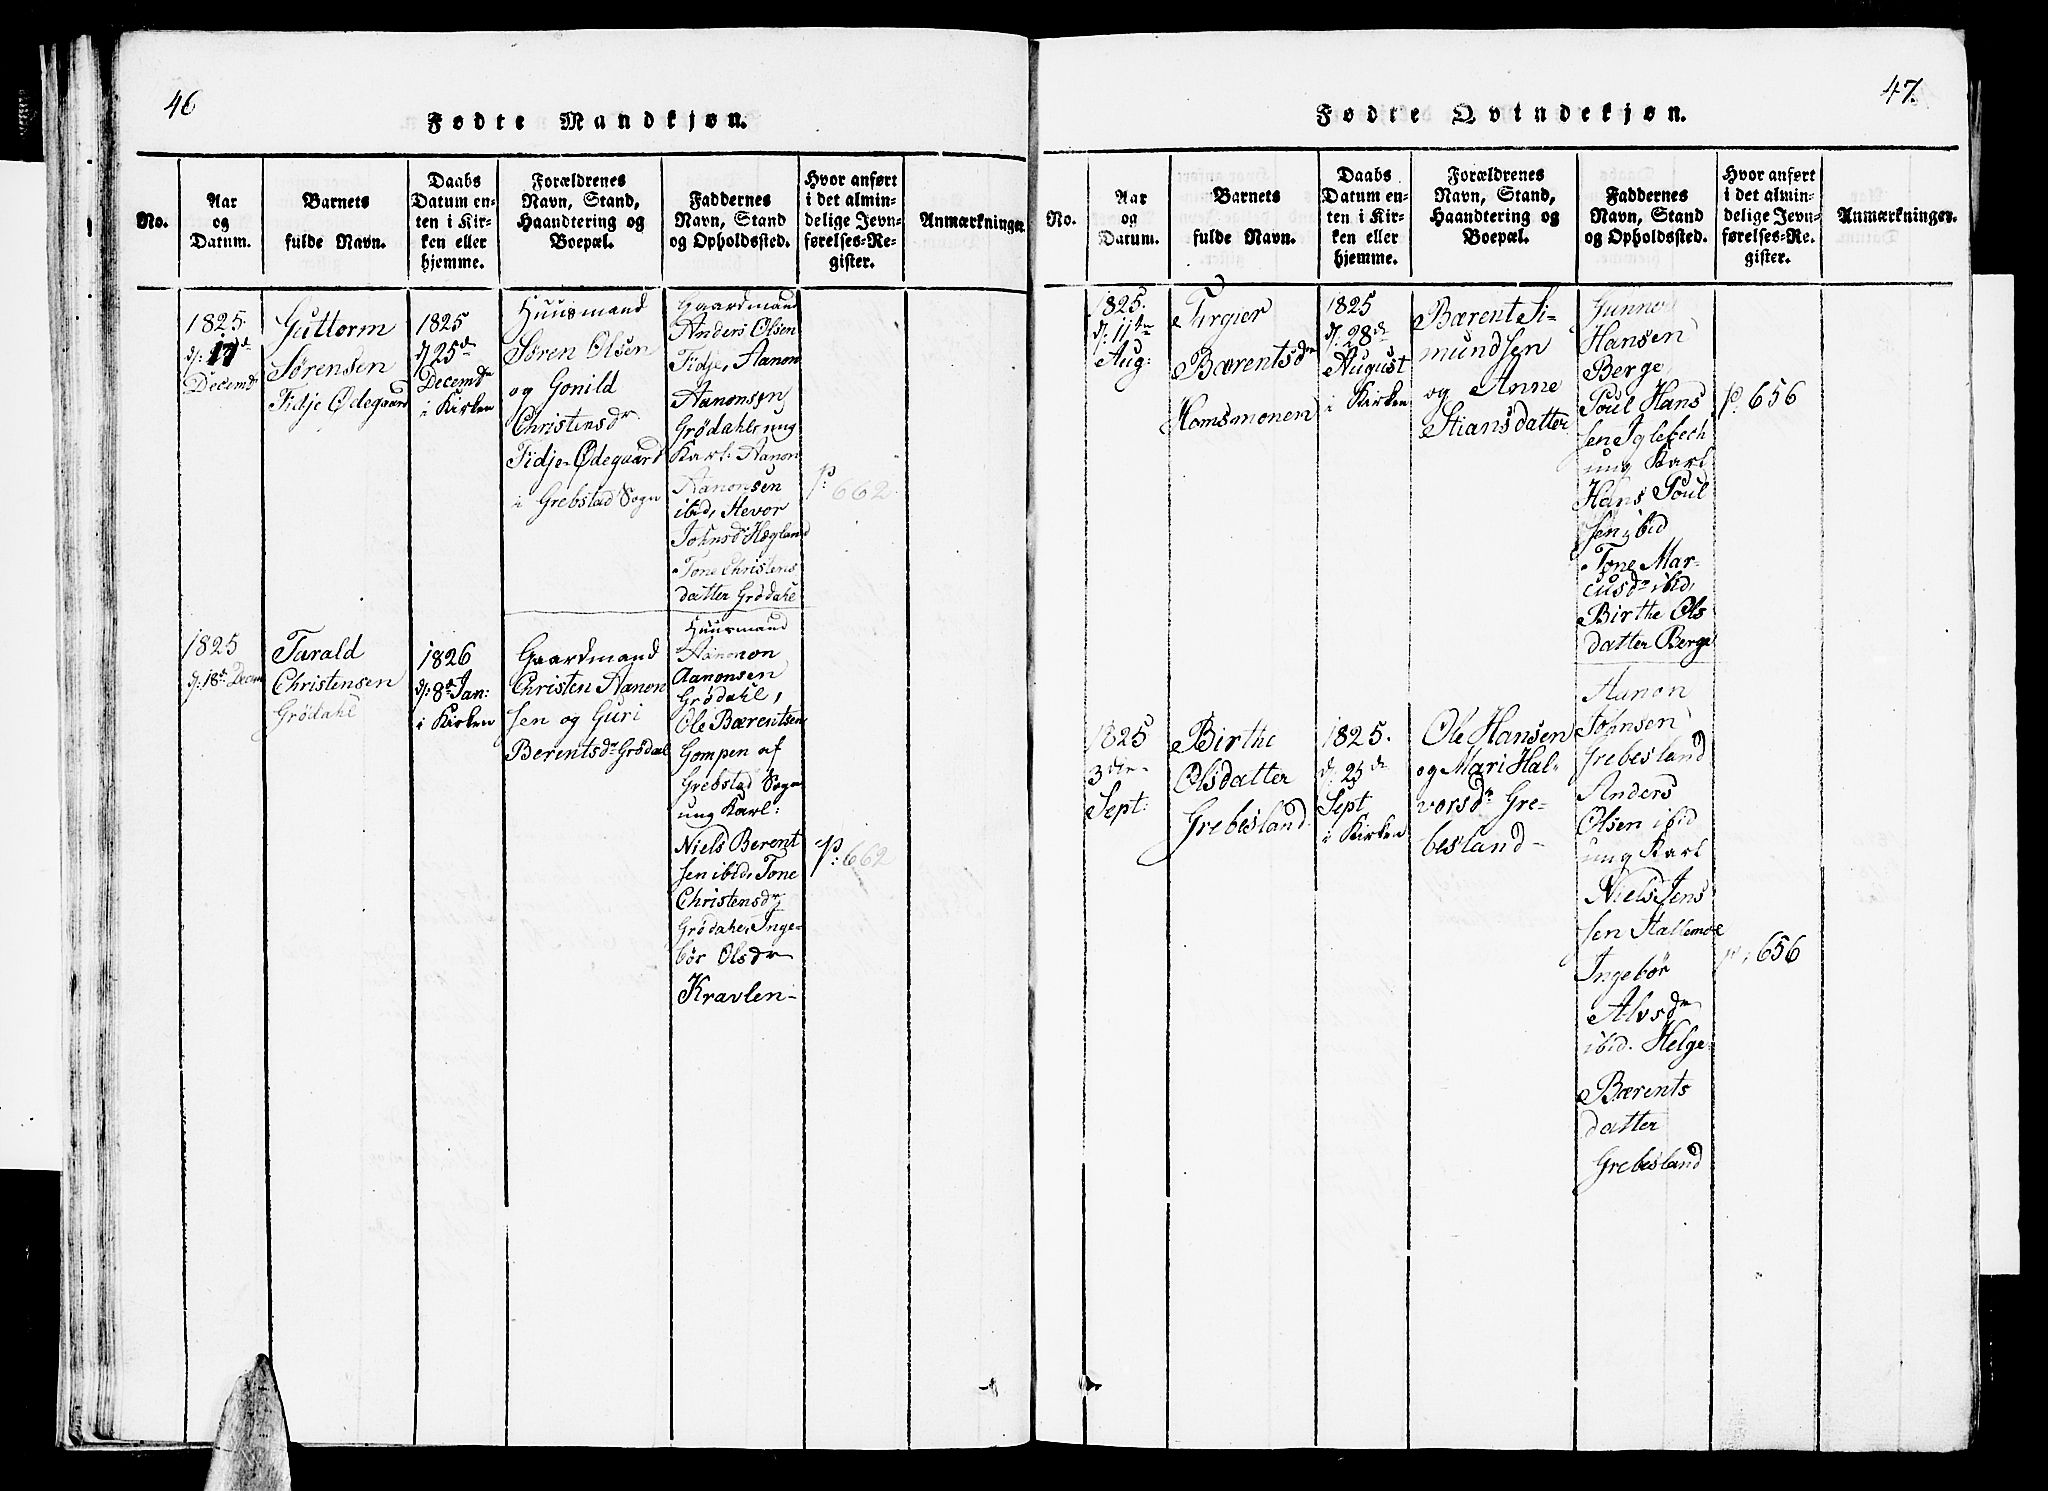 46
Fødte Mandkjøn.
No.
Aar
og
Datum.
Barnets
fulde Navn.
Daabs
Datum en-
ten i Kir-
ken eller
hjemme.
Forældrenes
Navn, Stand,
Haandtering og
Boepæl.
Faddernes
Navn, Stand
og Opholdssted.
Hvor anført
i det almin-
delige Jevn-
førelses-Re-
gister.
Anmærkninger.
1825
d: 17d
Decembr
Guttorm
Sørensen
Fidje Ødegaard
1825
d 25de
Decembr
i Kirken
Huusmand
Søren Olsen
og Gonild
Christensdr
Fidje Ødegaard
i Grebstad Sogn
Gaardmand
Anders Olsen
Fidje, Aanon
Aanonsen
Grödahl, ung
Karl: Aanon
Aanonsen
ibid,
Johnsdr Hægland
Tone Christens
datter Grödahl
p: 662
1825
d: 18de Decem
Tarald
Christensen
Grödahl
1826
d: 8de Jan:
i Kirken
Gaardmand
Christen Aanon
sen og Guri
Berentsdr Grödal
Huusmand
Aanonon
Aanonsen
Grödahl,
Ole Bærentsen
Gompen af
Grebstad Sogn
ung Karl:
Niels Berent
sen ibid, Tone
Christensdr
Grödahl, Inge-
bör Olsdr
Kravlen-
p: 662
47.
Fødte Qvindekjøn.
No.
Aar
og
Datum.
Barnets
fulde Navn.
Daabs
Datum en-
ten i Kir-
ken eller
hjemme.
Forældrenes
Navn, Stand,
Haandtering og
Boepæl.
Faddernes
Navn, Stand
og Opholdssted.
Hvor anført
i det almin-
delige Jevn-
førelses-Re-
gister.
Anmærkninger.
1825.
d: 11te
Aug:
Turgier
Bærentsdr
Homsmonen
1825
d: 28de
August
i Kirken
Bærent Si-
mundsen
og Anne
Stiansdatter
Gunnor
Hansen
Berge
Poul Hans
sen Iglebech
ung Karl
Hans Poul
sen ibid
Tone Mar-
cusdr ibid,
Birthe Ols
datter Berge
p. 656
1825
3die
Sept:
Birthe
Olsdatter
Grebesland
1825.
d. 25de
Sept
i Kirken
Ole Hansen
og Mari Hal-
vorsdr Gre-
besland-
Aanon
Johnsen
Grebesland
Anders
Olsen ibid
ung Karl
Niels Jens
sen Hallemoe
Ingebör
Alvsdr
ibid. Helge
Bærents
datter
Grebesland
p: 656